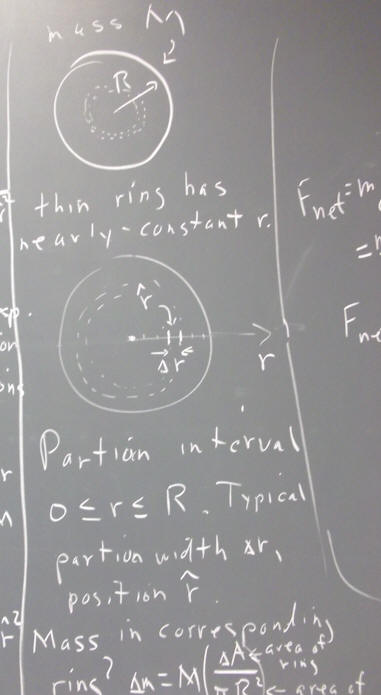 mass M
R
thin ring has
nearly-constant r.
r̂
Δr
r
Partion interval
0 ≤ r ≤ R. Typical
partion width Δr,
position r̂.
Mass in corresponding
ring? Δm = M(ΔA/πR²) ← area of ring
← area of
Fnet = m
=
Fne
sp.
or
ns
r